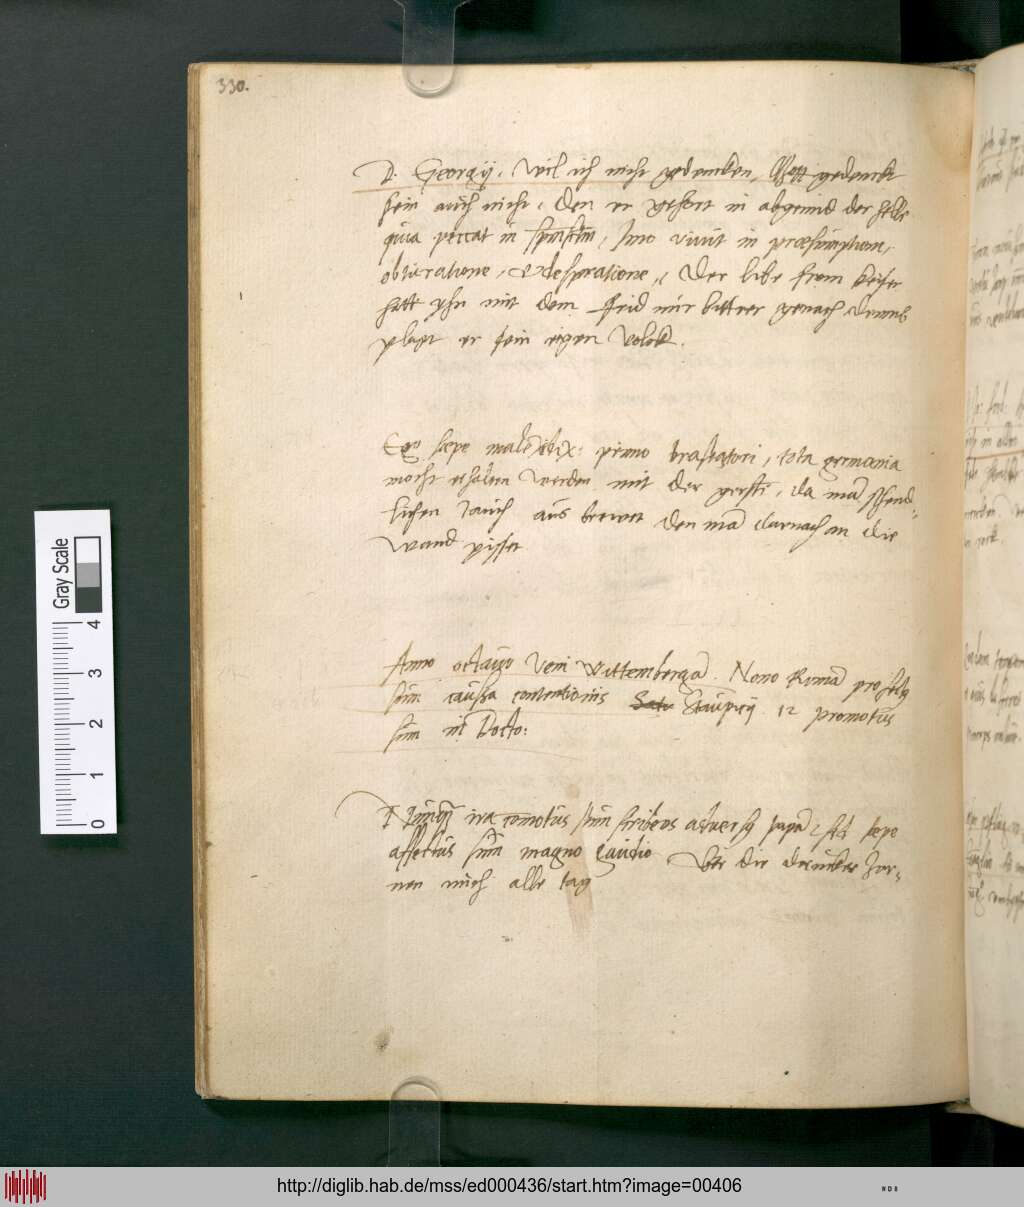 330.
D. Georgij, wil ich nicht gedencken, Gott gedenckt
sein auch nicht, den er gehort in abgrund der helle
quia peccat in spiritum sanctum, Imo vivit in praesumptione,
obduratione, & desperatione, Der libe from keiser
hatt yhn mit dem frid nur bittrer gemach drumb
plagt er sein eigen volck.
Ego saepe maledixi primo braxatori, tota germania
mocht erhalten werden mit der gersten, da mā schend-
lichen Jauch aus brewet den mā darnach an die
wand pisset
Anno octavo veni Wittembergā. Nono Romā profectus
sum caussa contentionis Staupicij 12 promotus
sum in Docto:
Nunquam ira comotus sum scribens adversus papā, sed saepe
affectus sum magno gaudio Uber die drucker zor-
nen mich alle tag
Gray Scale
4
3
2
1
0
http://diglib.hab.de/mss/ed000436/start.htm?image=00406